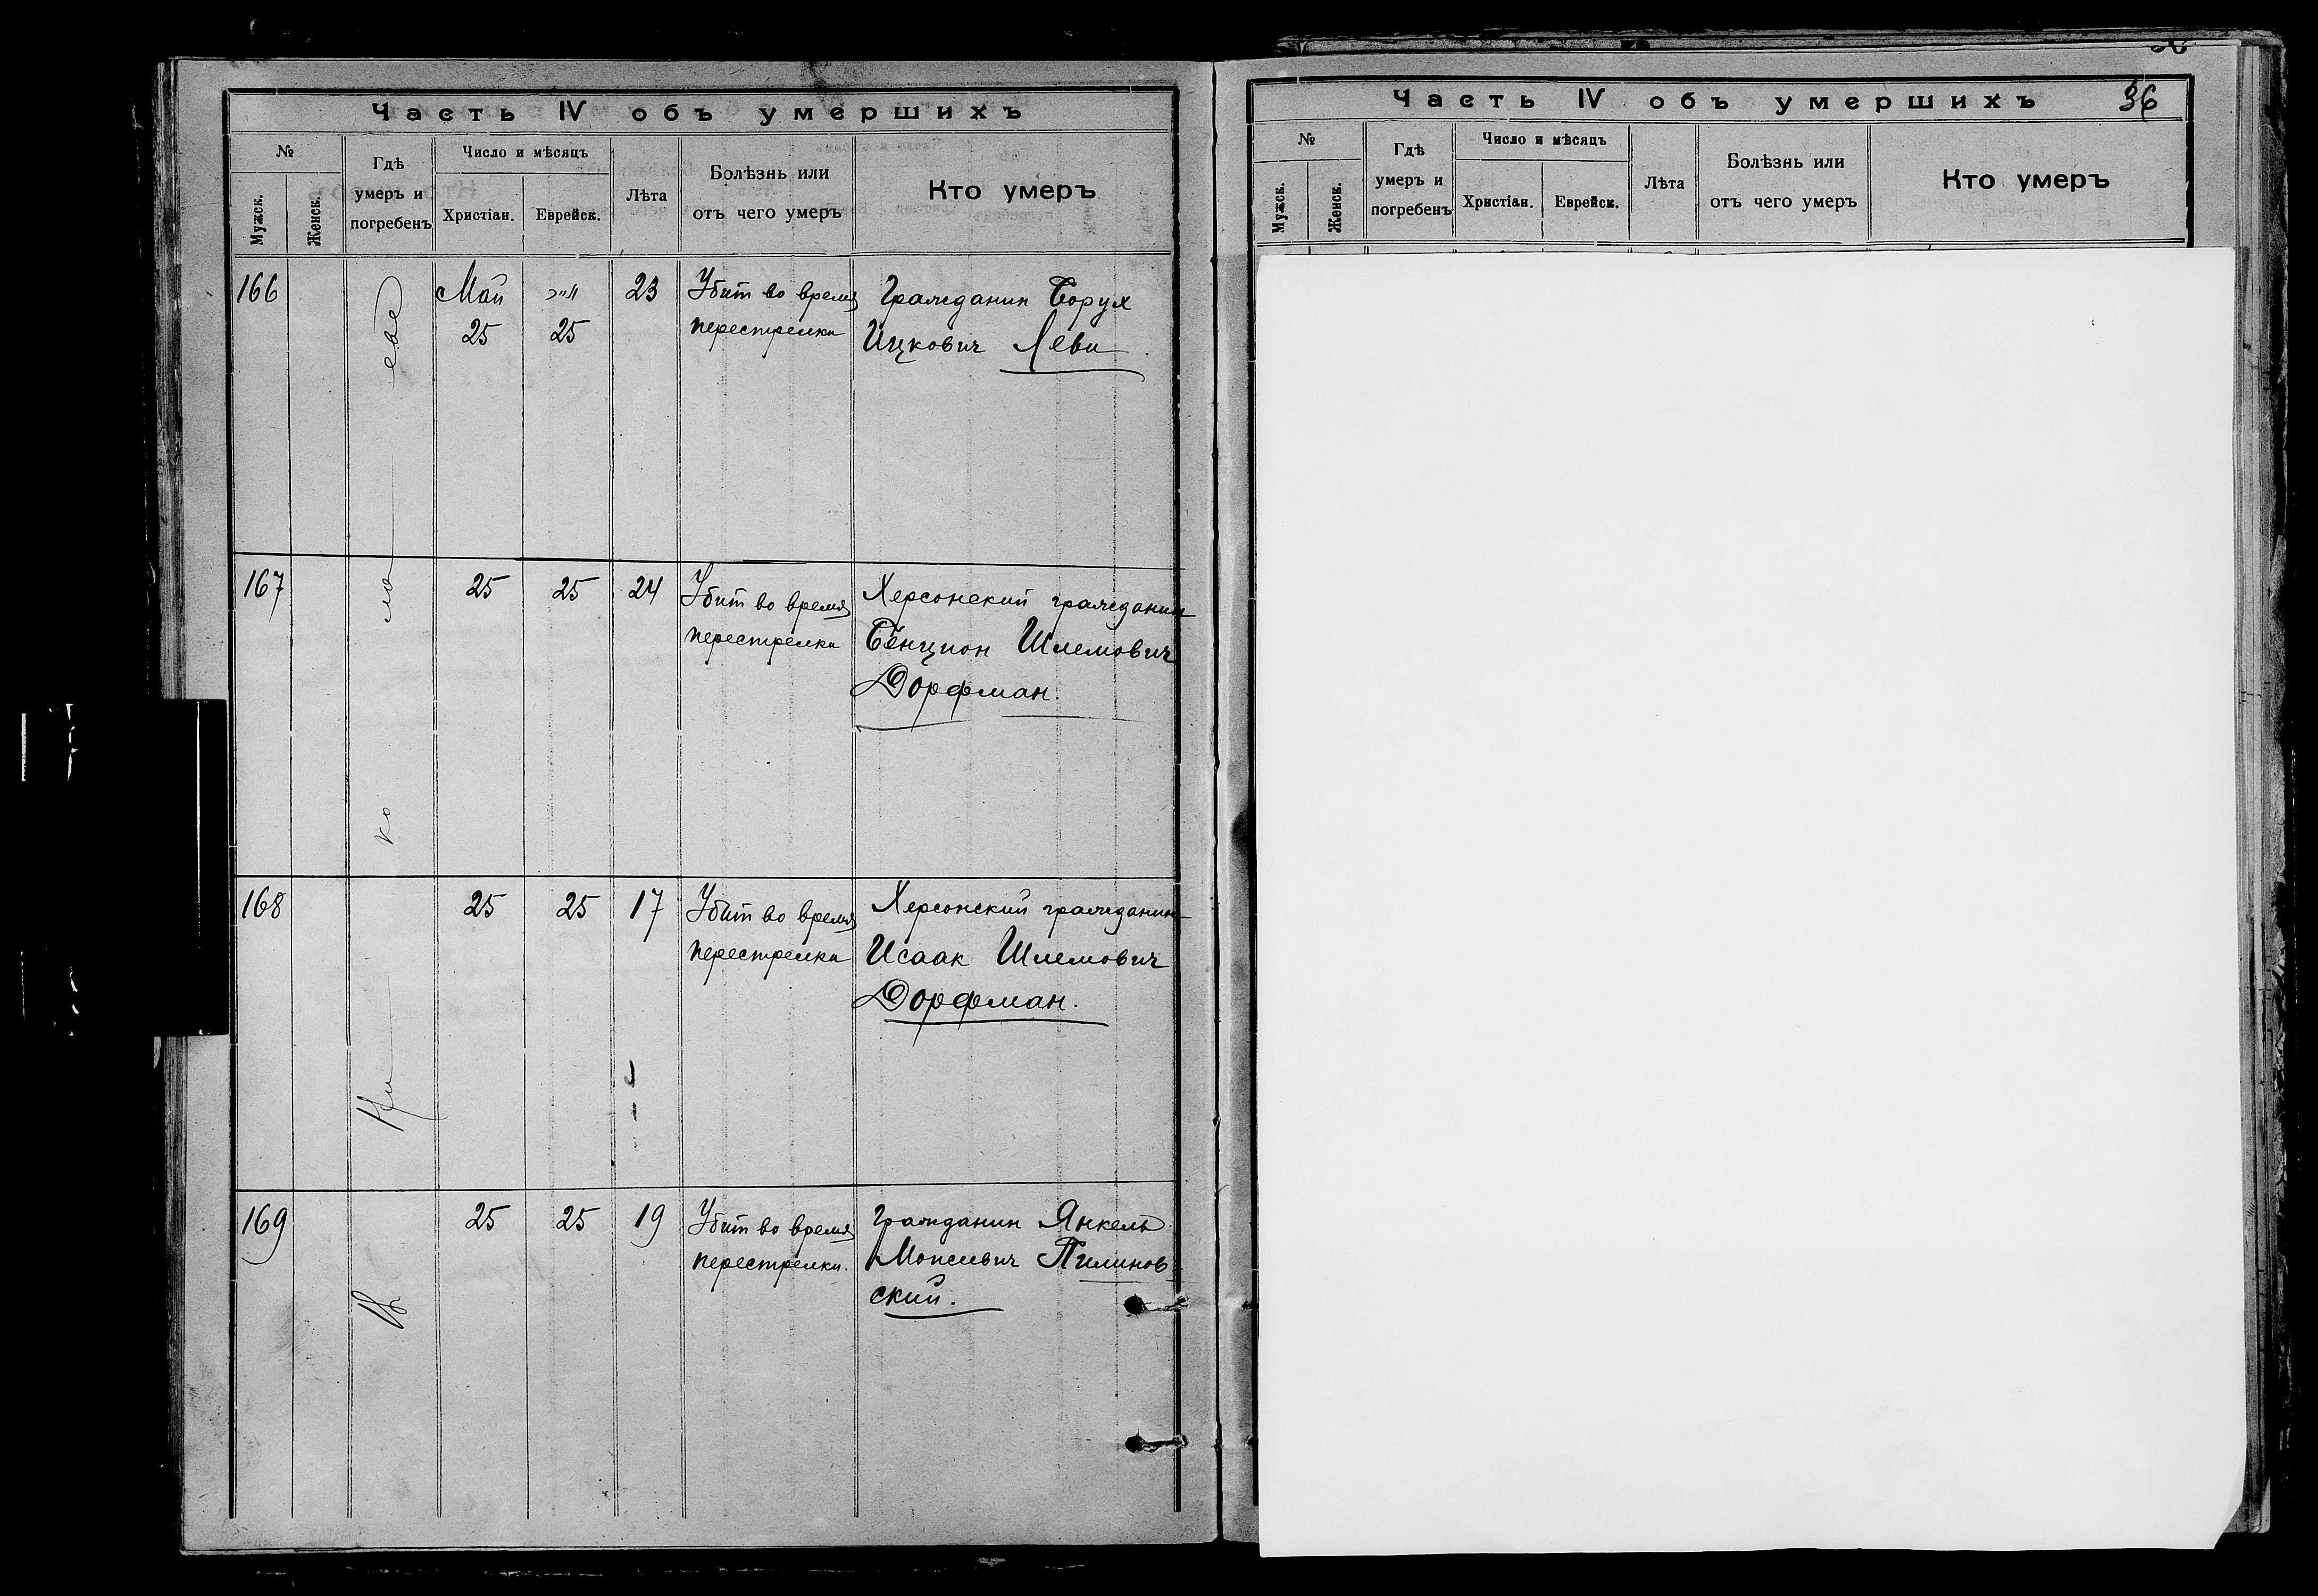 Часть IV объ умершихъ
№
Мужск.
Женск.
Гдѣ
умеръ и
погребенъ
Число и мѣсяцъ
Христіан.
Еврейск.
Лѣта
Болѣзнь или
отъ чего умеръ
Кто умеръ
В Николаеве
166
Май
25
25
23
Убит во время
перестрелки
Гражданин Борух
Ицкович Леви
167
25
25
24
Убит во время
перестрелки
Херсонский гражданин
Бенцион Шлемович
Дорфман.
168
25
25
17
Убит во время
перестрелки
Херсонский гражданин
Исаак Шлемович
Дорфман.
169
25
25
19
Убит во время
перестрелки.
Гражданин Янкель
Пилинов-
ский.
Часть IV объ умершихъ
36
№
Мужск.
Женск.
Гдѣ
умеръ и
погребенъ
Число и мѣсяцъ
Христіан.
Еврейск.
Лѣта
Болѣзнь или
отъ чего умеръ
Кто умеръ